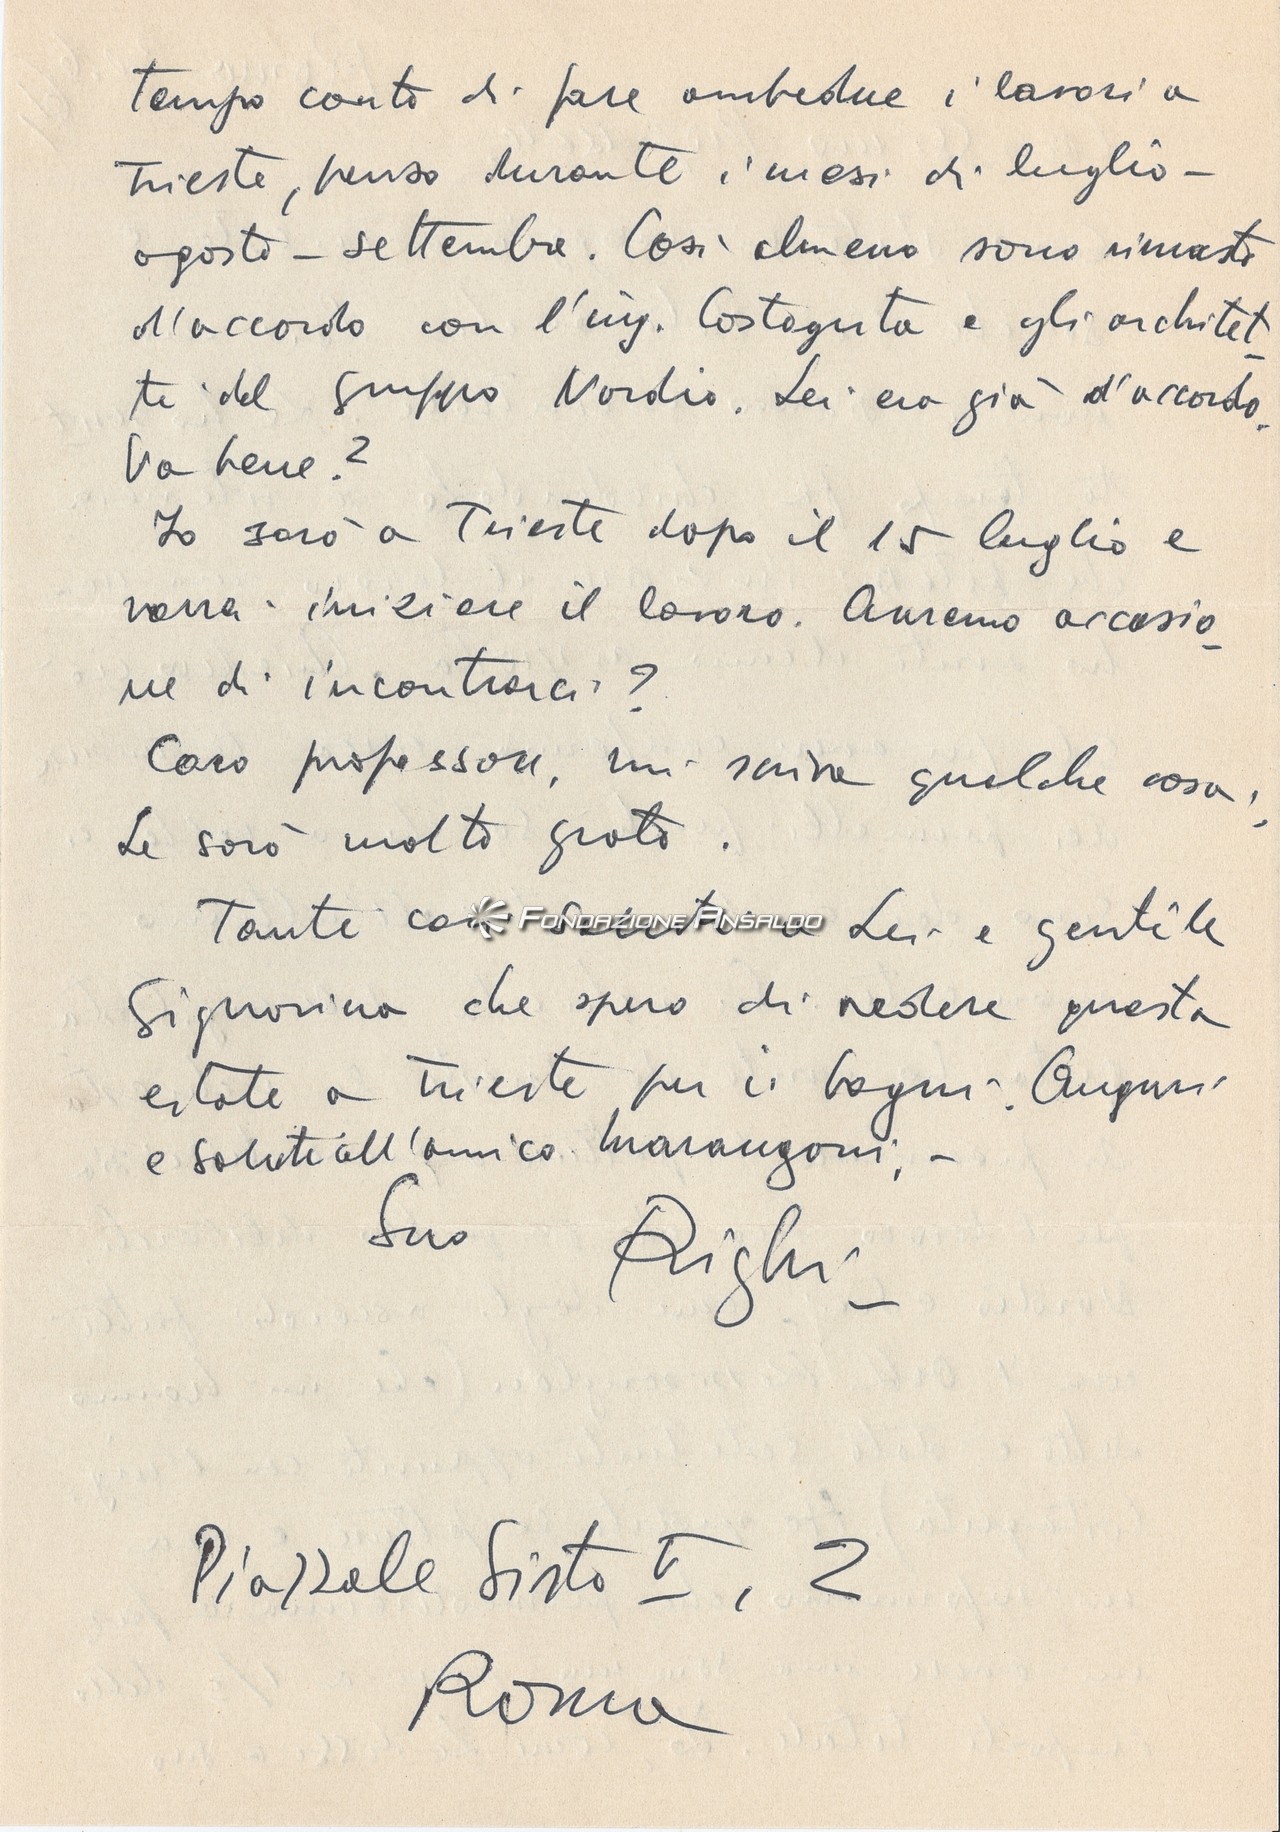 tempo conto di fare ambedue i lavori a
Trieste, penso durante i mesi di luglio -
agosto - settembre. Così almeno sono rimasto
d'accordo con l'ing. Costaguta e gli architet-
ti del gruppo Nordio. Lei era già d'accordo.
Va bene?
Io sarò a Trieste dopo il 15 luglio e
vorrei iniziare il lavoro. Avremo occasio-
ne di incontrarci?
Caro professore, mi scriva qualche cosa;
Le sarò molto grato.
Tanti cari saluti a Lei e gentile
FONDAZIONE ANSALDO
Signorina che spero di vedere questa
estate a Trieste per i bagni. Auguri
e saluti all'amico Marangoni, -
Suo Righi -
Piazzale Sisto V, 2
Roma